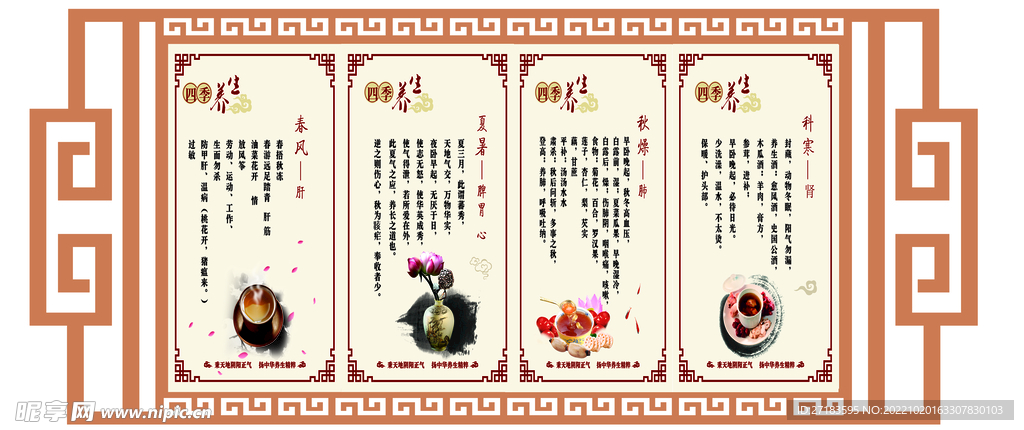 四季养生
春风——肝
春捂秋冻
春游远足踏青 肝 筋
油菜花开 情
放风筝
劳动、运动、工作、
生面勿杀
防甲肝、温病（桃花开，猪瘟来。）
过敏
秉天地阴阳正气 扬中华养生精粹
四季养生
夏暑——脾胃 心
夏三月，此谓蕃秀，
天地气交，万物华实，
夜卧早起，无厌于日，
使志无怒，使华英成秀，
使气得泄，若所爱在外，
此夏气之应，养长之道也。
逆之则伤心，秋为痎疟，奉收者少。
秉天地阴阳正气 扬中华养生精粹
四季养生
秋燥——肺
早卧晚起，秋冬高血压，
白露前，湿：夏菜瓜果，早晚湿冷，
白露后，燥：伤肺阴，咽喉痛，咳嗽，
食物：菊花，百合，罗汉果，
莲子，杏仁，梨，芡实
藕，甘蔗
平补：汤汤水水
肃杀：秋后问斩，多事之秋，
登高：养肺，呼吸吐纳。
秉天地阴阳正气 扬中华养生精粹
四季养生
科寒——肾
封藏，动物冬眠，阳气勿漏，
养生酒：愈风酒，史国公酒，
木瓜酒：羊肉，膏方，
参茸，进补：
早卧晚起，必待日光。
少洗澡，温水，不太烫。
保暖，护头部。
秉天地阴阳正气 扬中华养生精粹
昵享网 www.nipic.cn
ID:27183595 NO:20221020163307830103